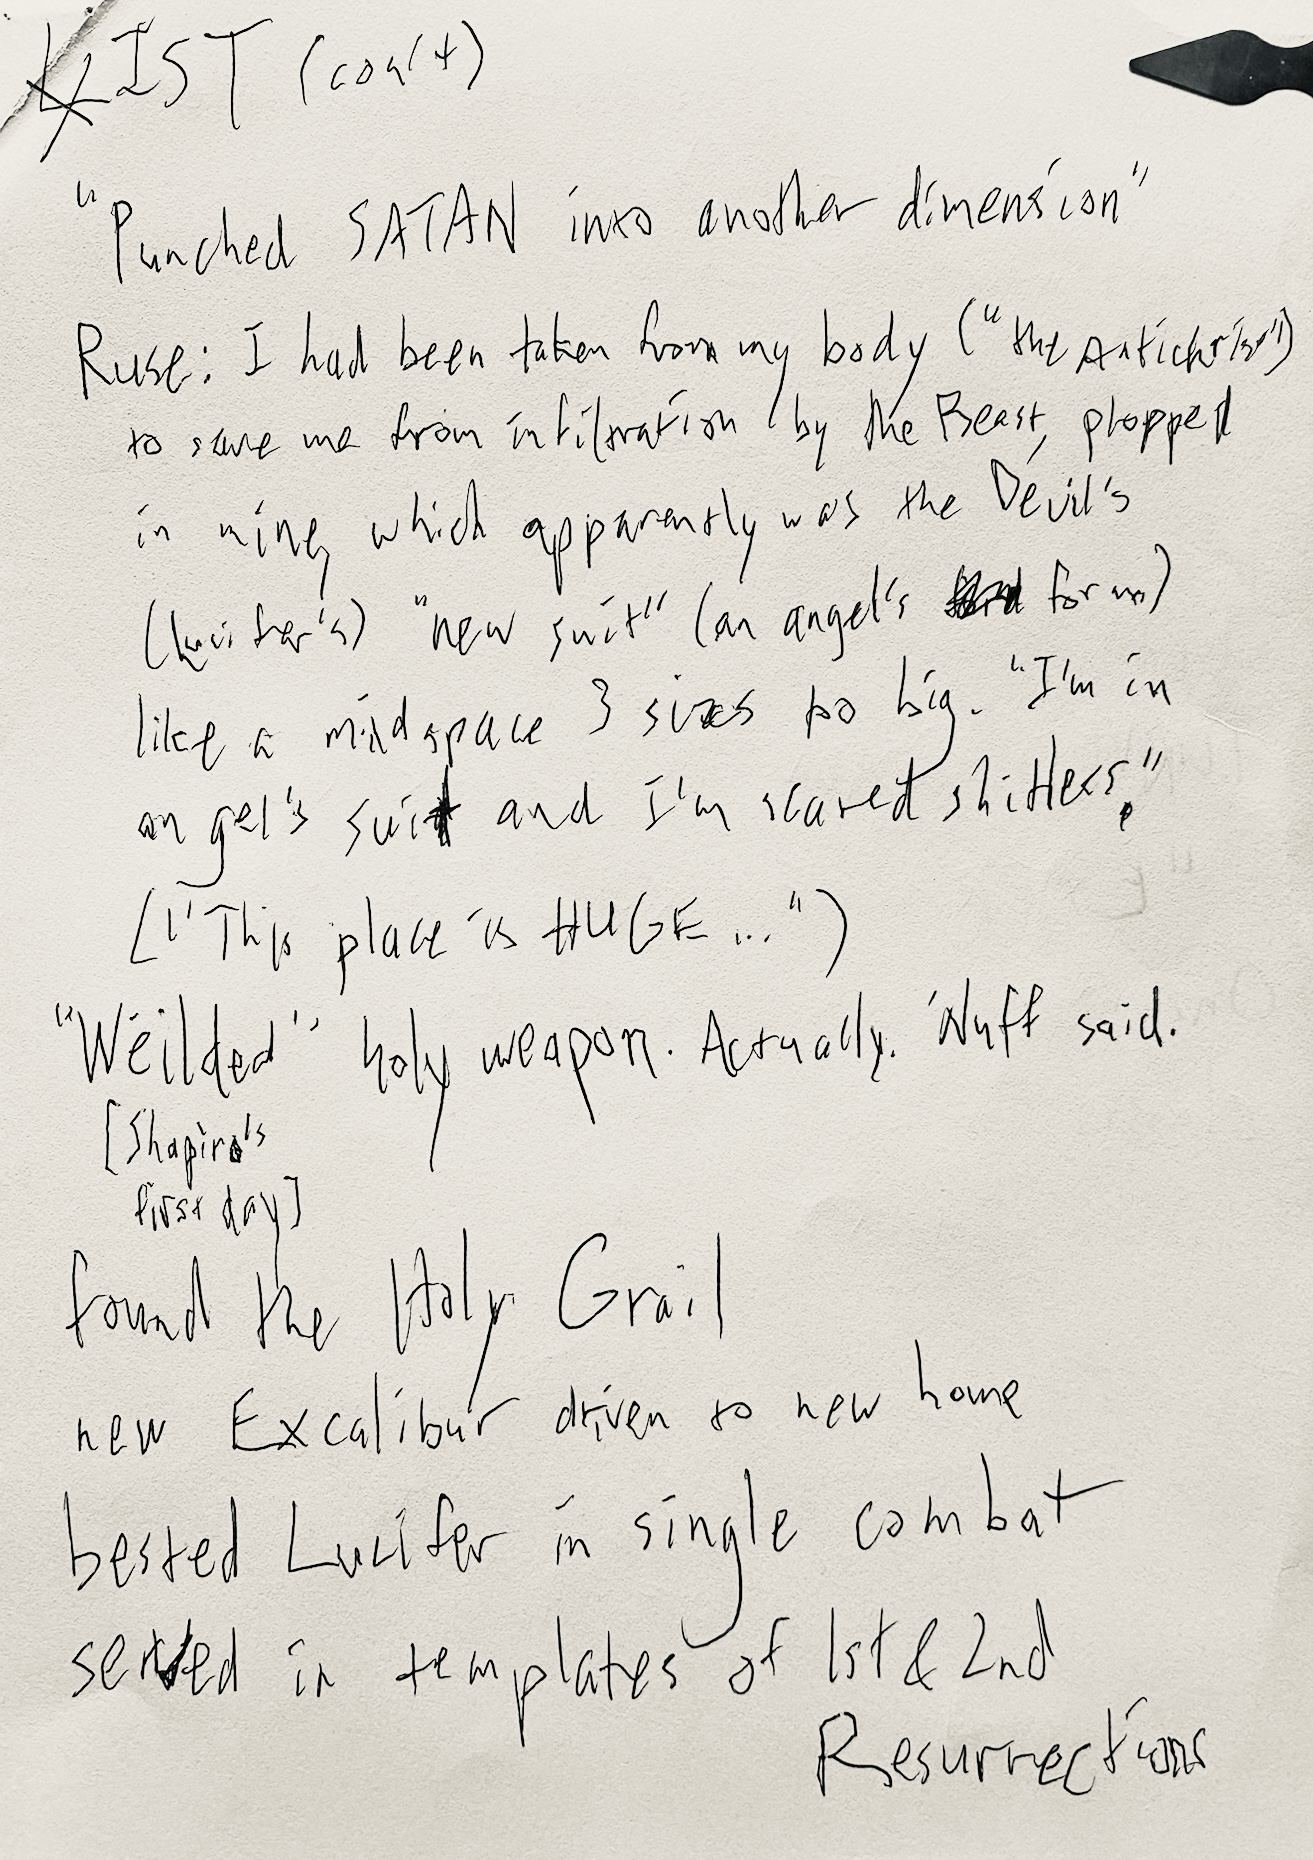 LIST (con't)
"Punched SATAN into another dimension"
Ruse: I had been taken from my body ("the Antichrist")
to save me from infiltration by the Beast, plopped
in mine, which apparently was the Devil's
(Lucifer's) "new suit" (an angel's form)
like a mindspace 3 sizes too big. "I'm in
angel's suit and I'm scared shitless."
("This place is HUGE...")
"Weilded" holy weapon. Actually. 'Nuff said.
[Shapiro's
first day]
found the Holy Grail
new Excalibur driven to new home
bested Lucifer in single combat
served in templates of 1st & 2nd
Resurrections